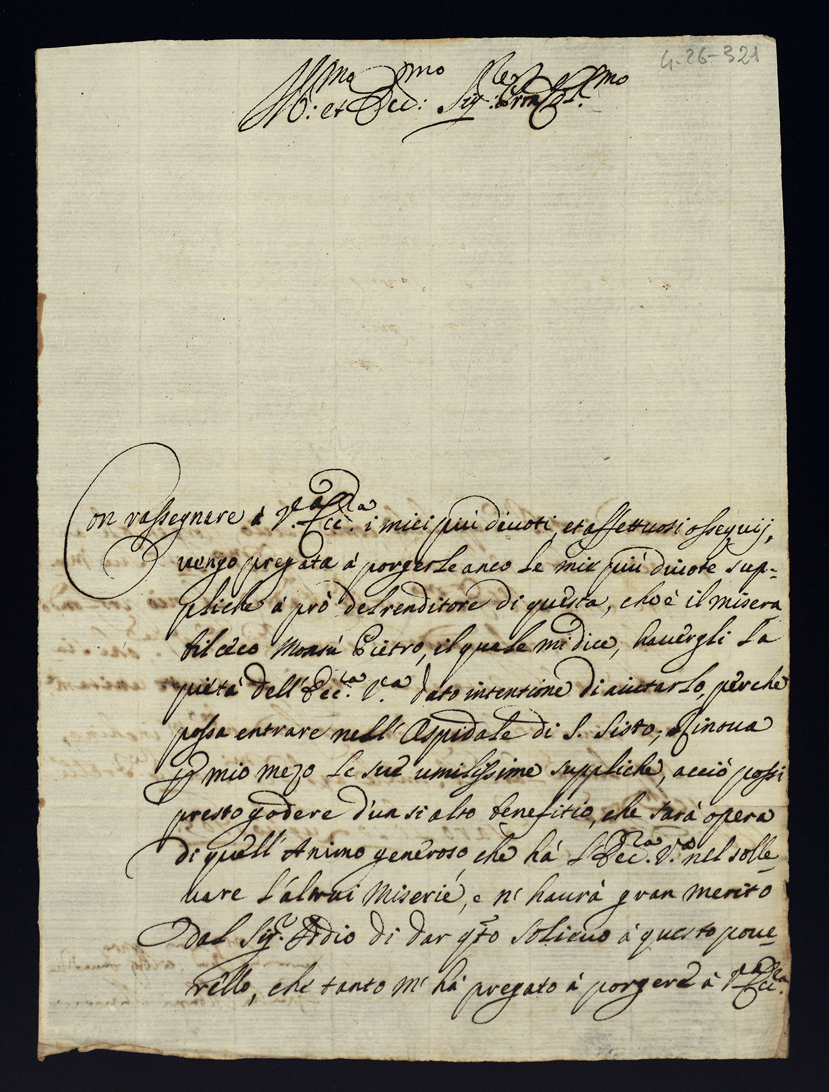 4-26-321
Ill:ma et Ecc:mo Sig:re Pron Col:mo
Con rassegnare à V.a Ecc.a i miei più divoti, et affettuosi ossequij,
vengo pregata à porgerle anco le mie più divote sup-
pliche à prò del renditore di questa, ch'è il misera
bil ceco Monsù Pietro, il quale mi dice, havergli la
pietà dell'Ecc.a V.a dato intentione di aiutarlo, perche
possa entrare nell'Ospidale di S. Sisto, Rinova
p mio mezo le sue umilissime suppliche, acciò possi
presto godere d'un si alto benefitio, che sarà opera
di quell'Animo generoso, che hà l'Ecc.a V.a nel solle-
vare l'altrui Miserie, e n'haurà gran merito
dal Sig.r Iddio di dar q.to solievo à questo pove-
rello, che tanto m'hà pregato à porgere à V.a Ecc.a